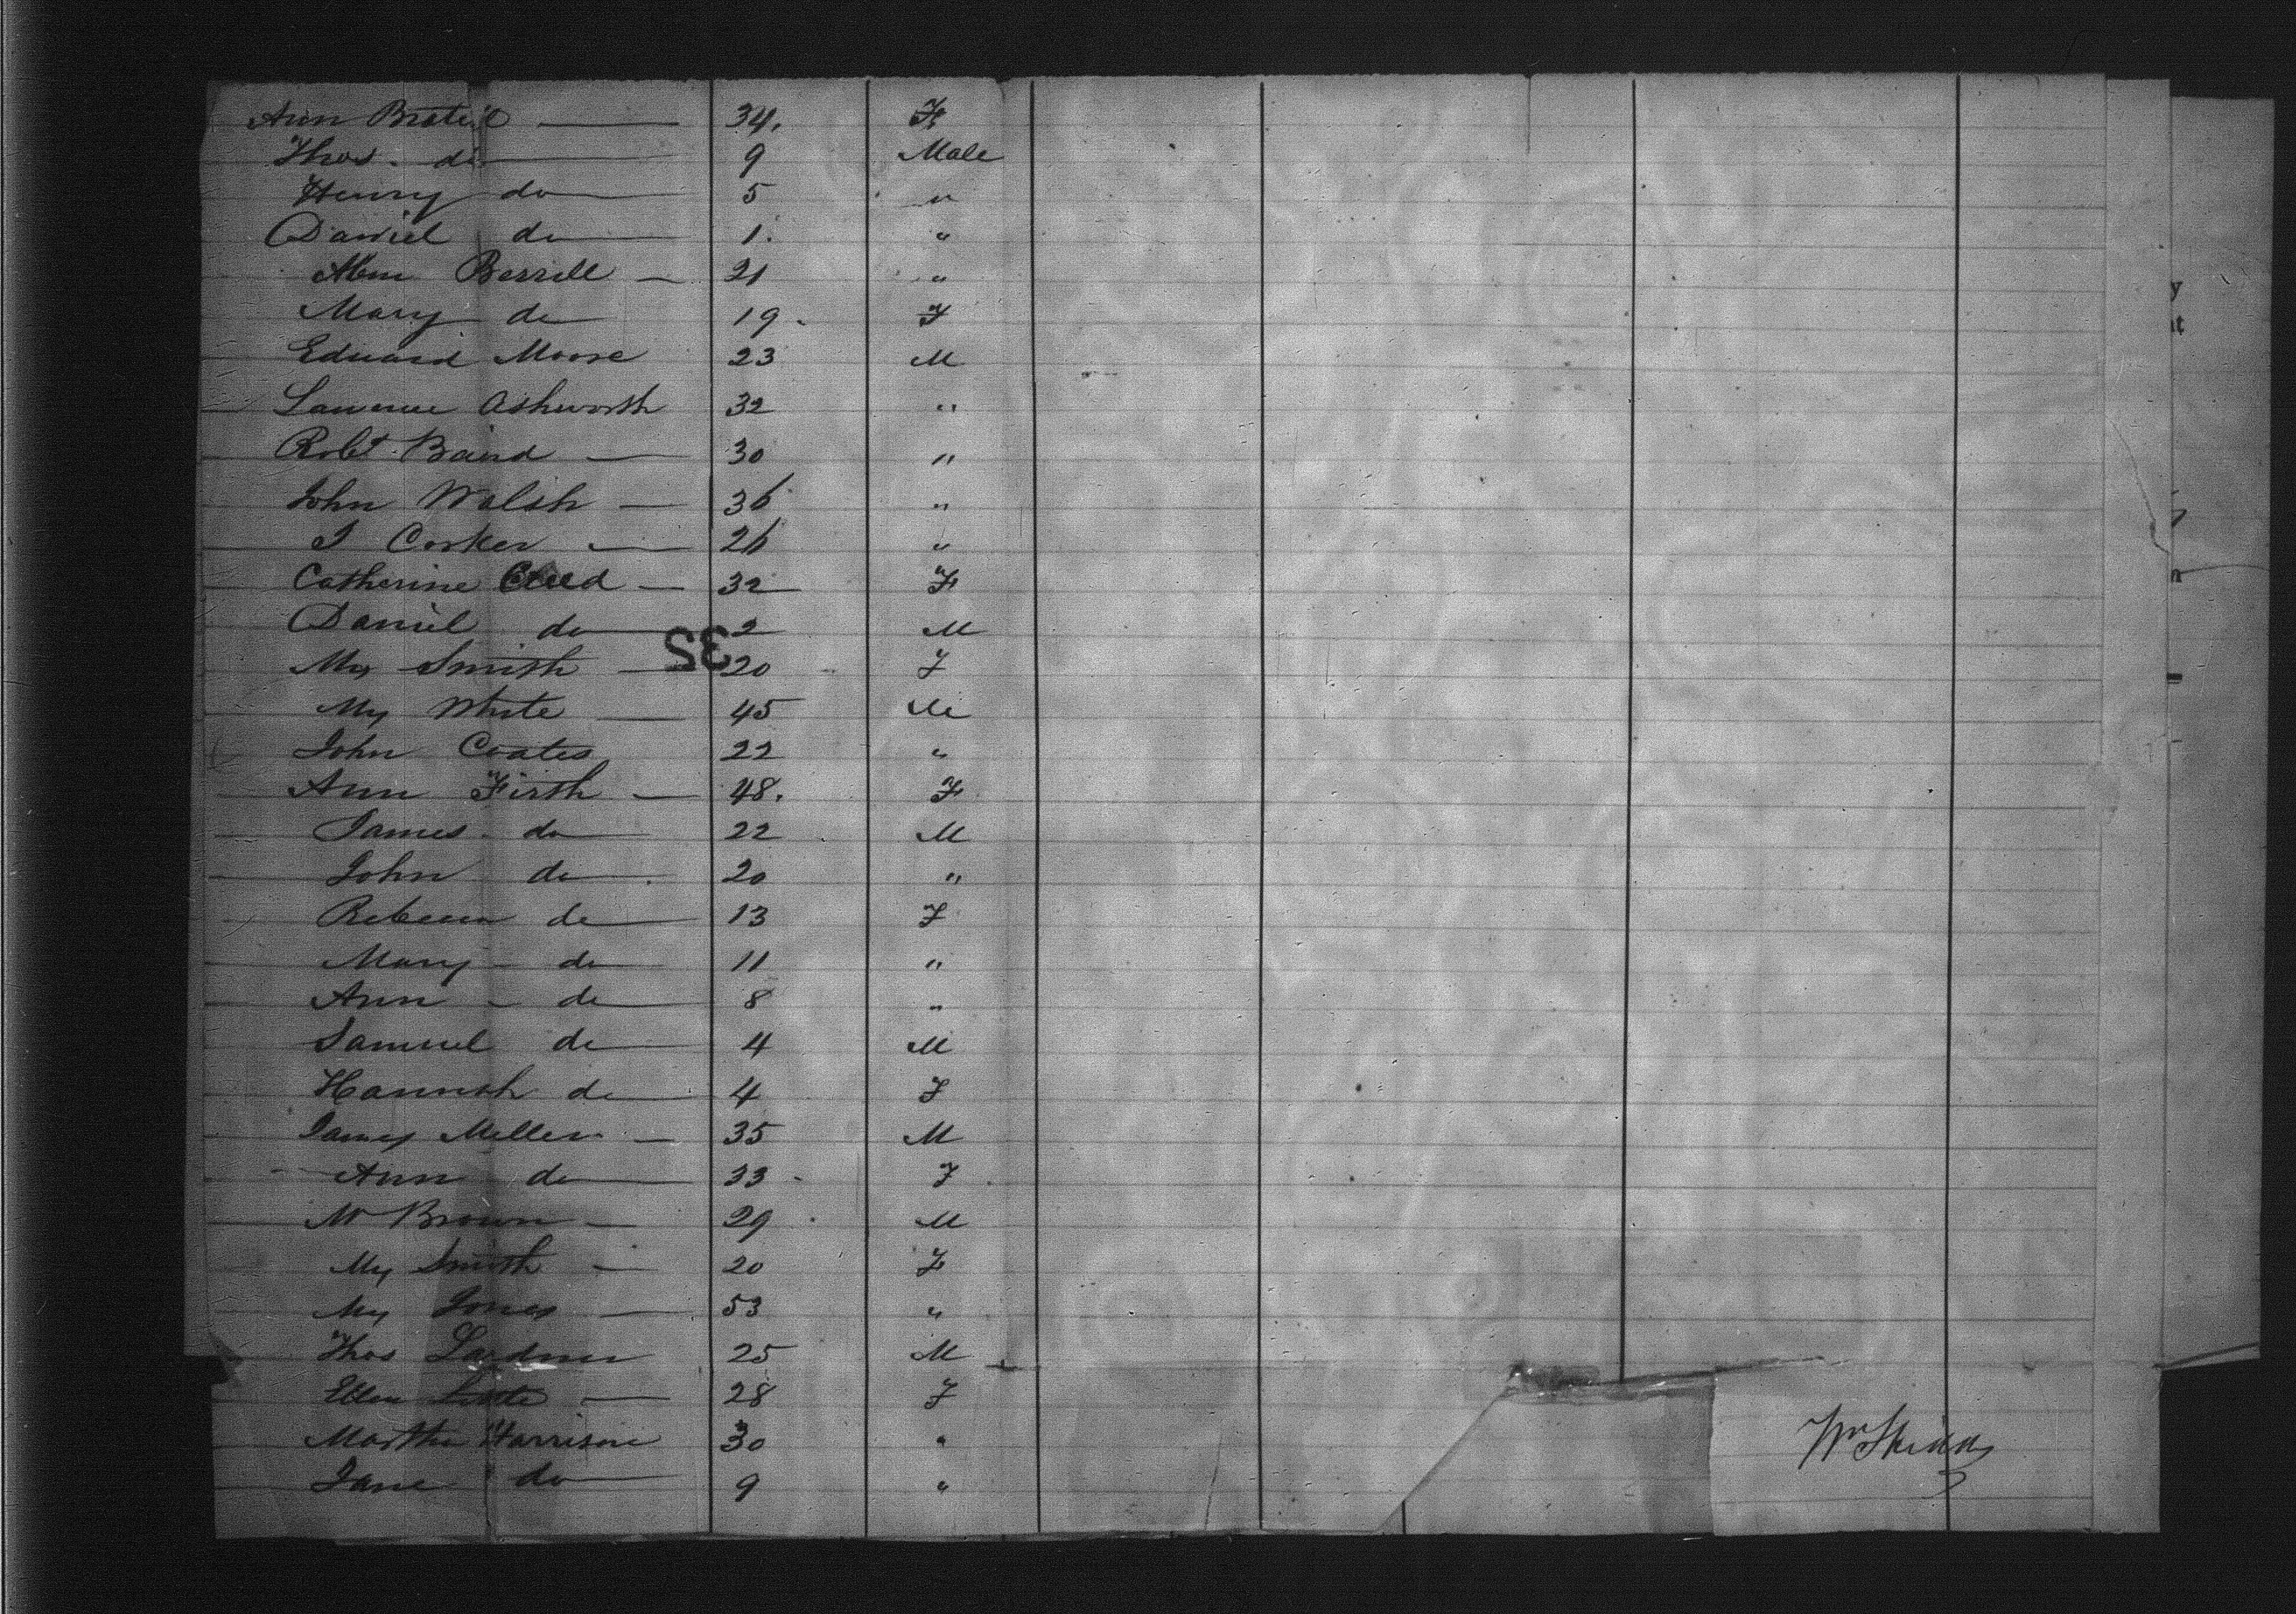 Ann 34. F
Thos. do 9 Male
Henry do 5 "
Daniel do 1. "
Berrill 21 "
Mary do 19 F
Edward Moore 23 M
Lawrence Ashworth 32 "
Robt Baird 30 "
John Walsh 36 "
J Corker 26 "
Catherine 32 F
Daniel do 2 M
32
My Smith 20 F
My White 45 M
John Coates 22 "
Ann Firth 48. F
James do 22 M
John do 20 "
Rebecca do 13 F
Mary do 11 "
Ann do 8 "
Samuel do 4 M
Hannah do 4 F
James Miller 35 M
Ann do 33 F
Brown 29 M
My Smith 20 F
My Jones 53 "
Thos Lardner 25 M
Ellen 28 F
Martha Harrison 30 "
Jane do 9 "
Wm